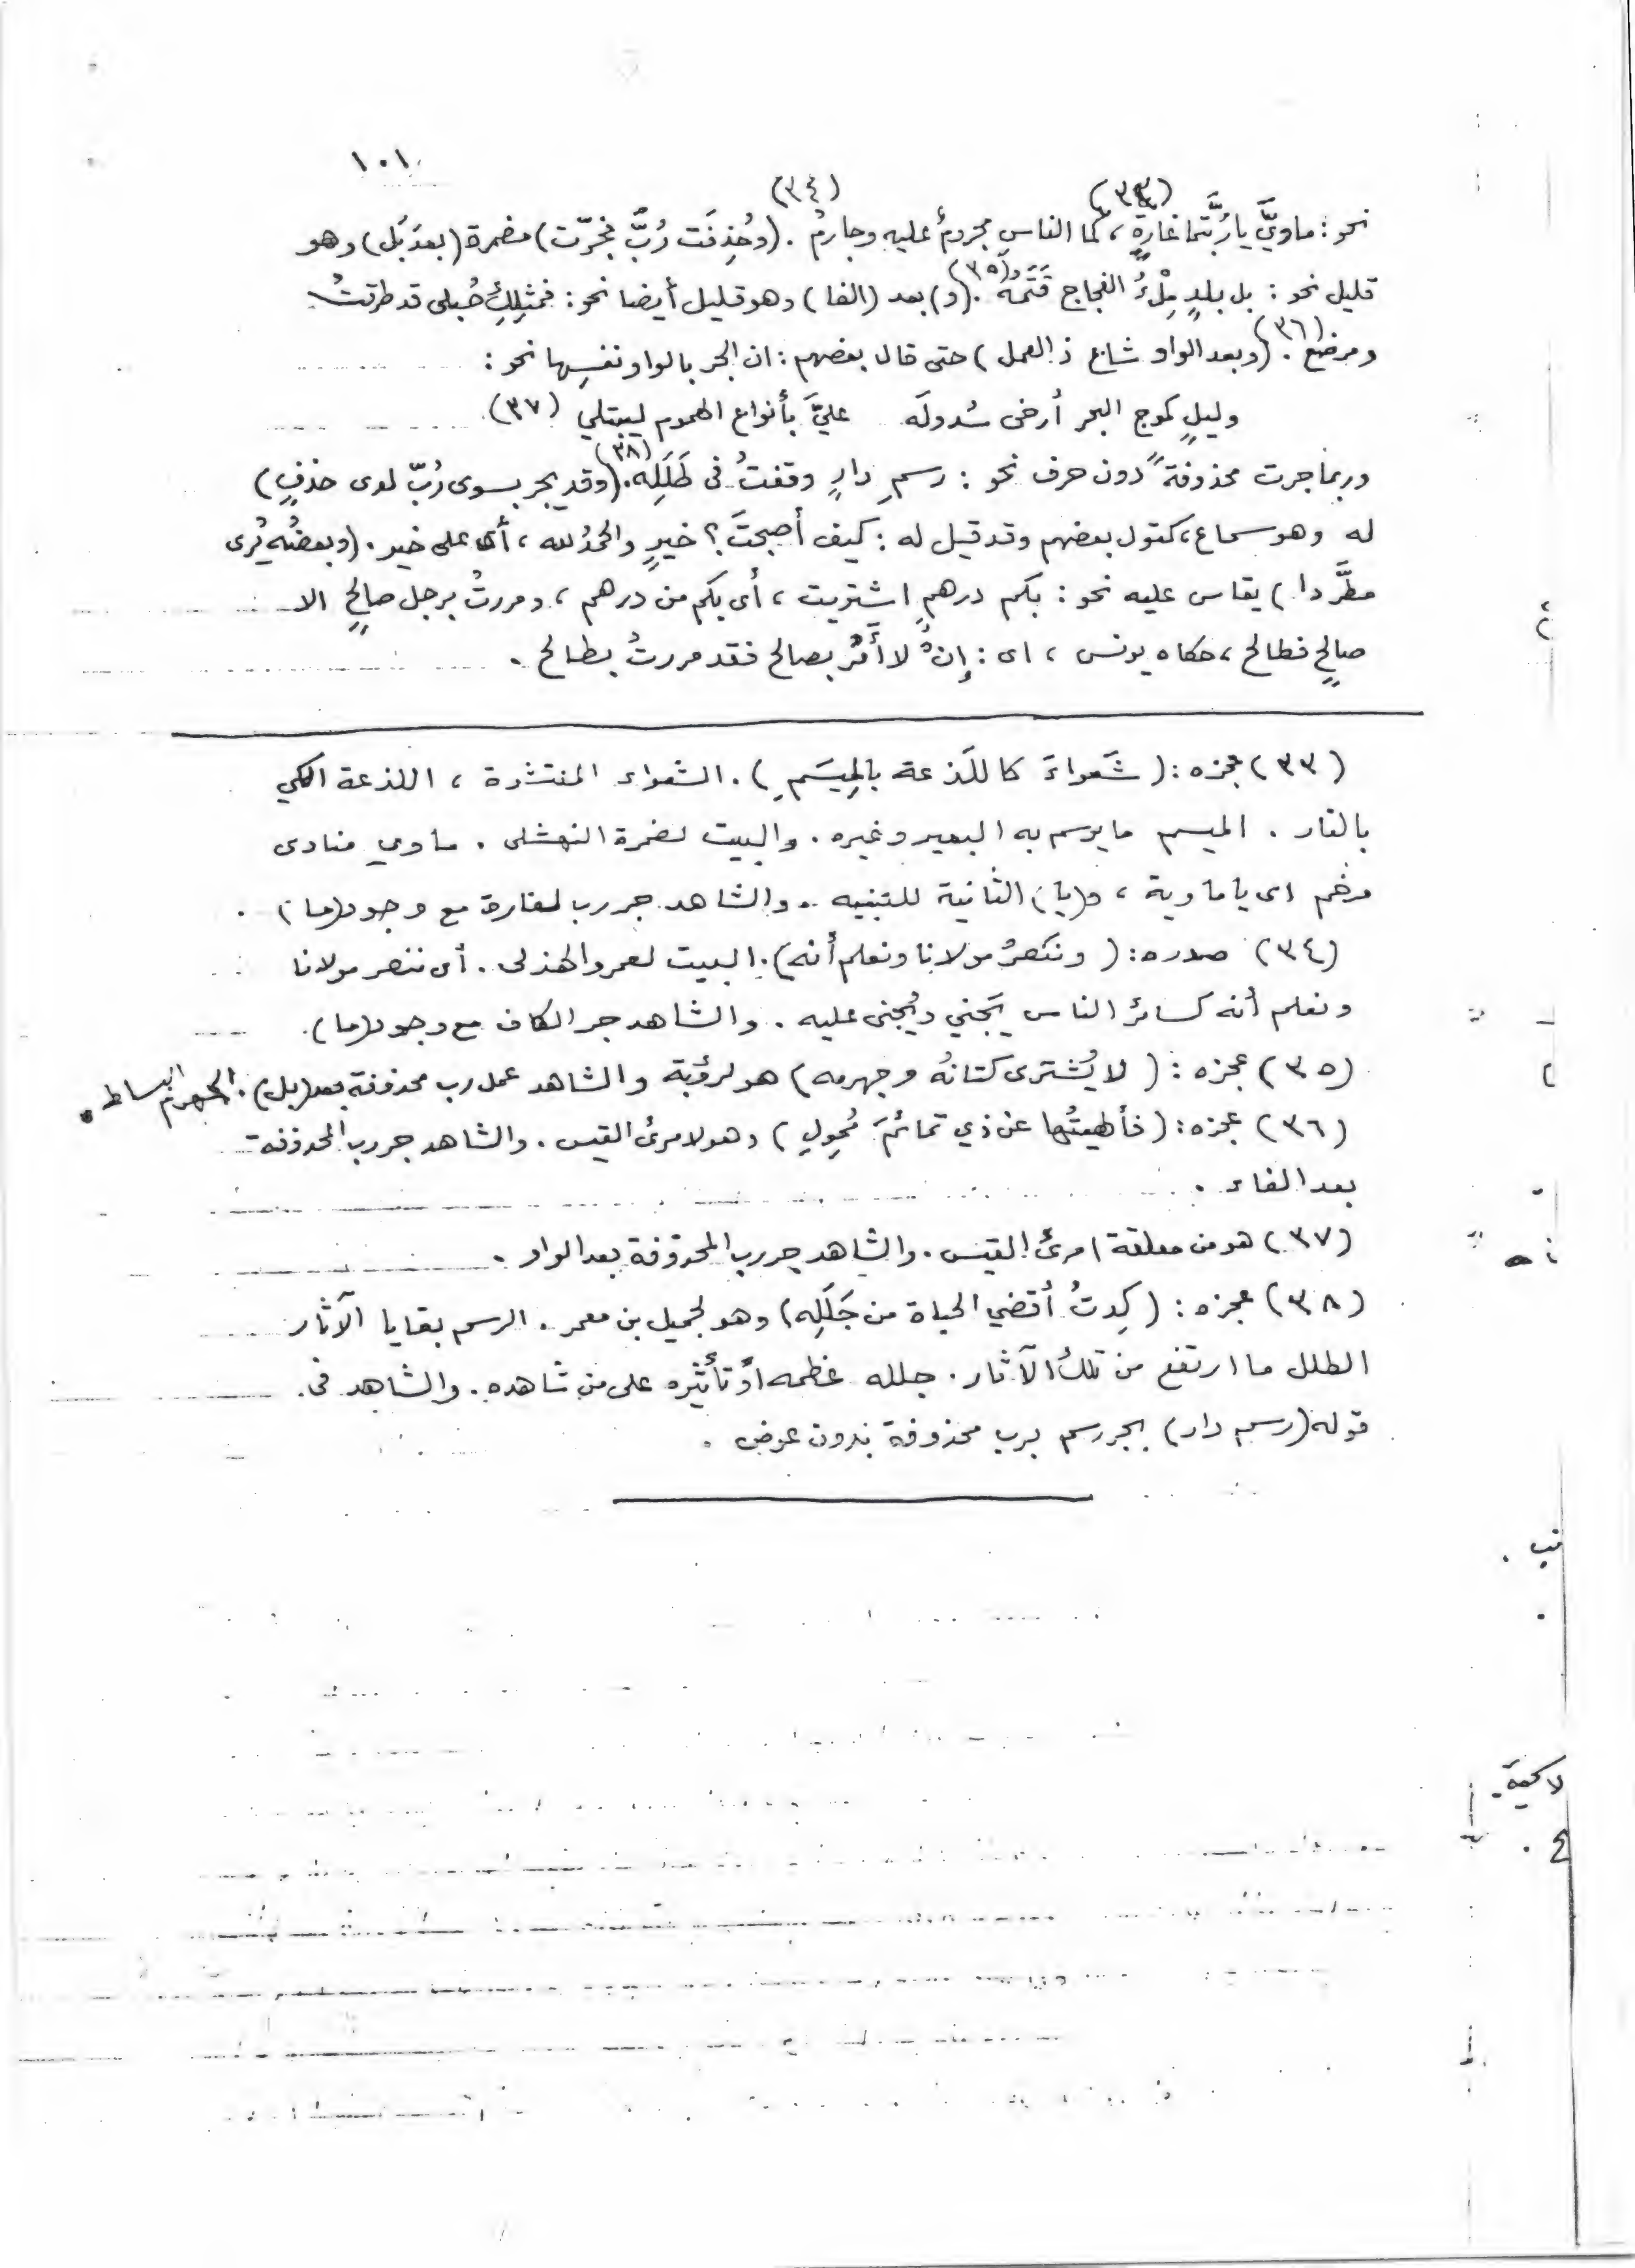 ١٠١
(٣٣) (٣٤)
نحو : ماويَّ يا رُبَّتَما غارةٍ ، كما الناسِ مجرومٌ عليه وجارمُ . (وحُذِفَت رُبَّ فجَرّت) مضمرة (بعدَ بَل) وهو
قليل نحو : بل بلدٍ مِلْءُ الفجاج قَتَمُهْ (٣٥) . (و) بعد (الفا) وهو قليل أيضا نحو : فمثلِكِ حُبلى قد طرقتُ
ومرضع (٣٦) . (وبعد الواو شاع ذا العمل) حتى قال بعضهم : ان الجر بالواو نفسِها نحو :
وليلٍ كموج البحر أرخى سُدولَه عليَّ بأنواع الهموم ليبتلي (٣٧)
وربما جرت محذوفةً دون حرف نحو : رسمِ دارٍ وقفتُ فى طَلَلِه (٣٨) . (وقد يجر بسوى رُبّ لدى حذفٍ)
له وهو سماع ، كقول بعضهم وقد قيل له : كيف أصبحتَ ؟ خيرٍ والحمدُ لله ، أى على خير . (وبعضُه يُرى
مطَّردا) يقاس عليه نحو : بكم درهمٍ اشتريت ، أى بكم من درهم ، ومررتُ برجل صالحٍ الا
صالحٍ فطالح ، حكاه يونس ، اى : إنْ لا أَمُرّ بصالح فقد مررتُ بطالح .
(٣٣) عجزه : (شَعواءَ كاللَذعة بالمِيسَمِ) . الشعواء المنتشرة ، اللذعة الكي
بالنار . الميسم ما يوسم به البعير وغيره . والبيت لضمرة النهشلى . ماوي منادى
مرخم اى يا ماوية ، و(يا) الثانية للتنبيه . والشاهد جر رب لغارة مع وجود (ما) .
(٣٤) صدره : (وننصرُ مولانا ونعلم أنه) . البيت لعمرو الهذلى . أى ننصر مولانا
ونعلم أنه كسائر الناس يَجني ويُجنى عليه . والشاهد جر الكاف مع وجود (ما) .
(٣٥) عجزه : (لا يُشترى كتانُه وجهرمه) هو لرؤبة والشاهد عمل رب محذوفة بعد (بل) . الجهرم البساط .
(٣٦) عجزه : (فألهيتُها عن ذي تمائمَ مُحوِلِ) وهو لامرئ القيس . والشاهد جر رب المحذوفة
بعد الفاء .
(٣٧) هو من معلقة امرئ القيس . والشاهد جر رب المحذوفة بعد الواو .
(٣٨) عجزه : (كِدتُ أقضي الحياة من جَلَلِه) وهو لجميل بن معمر . الرسم بقايا الآثار
الطلل ما ارتفع من تلك الآثار . جلله عظمه أو تأثيره على من شاهده . والشاهد فى
قوله (رسم دار) بجر رسم برب محذوفة بدون عوض .